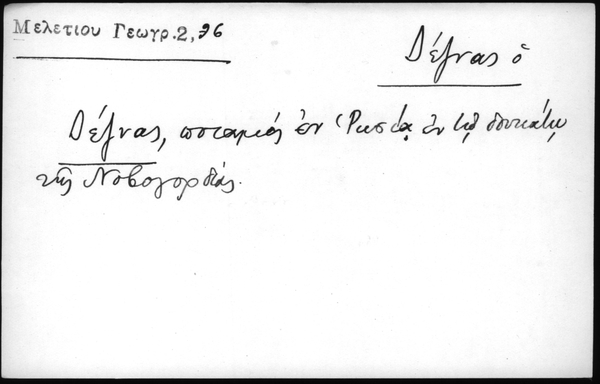 Μελετίου Γεωγρ.2,96
Δέζνας ὁ
Δέζνας, ποταμός ἐν Ῥωσίᾳ ἐν τῷ δουκάτῳ
τῆς Νοβογορδίας.